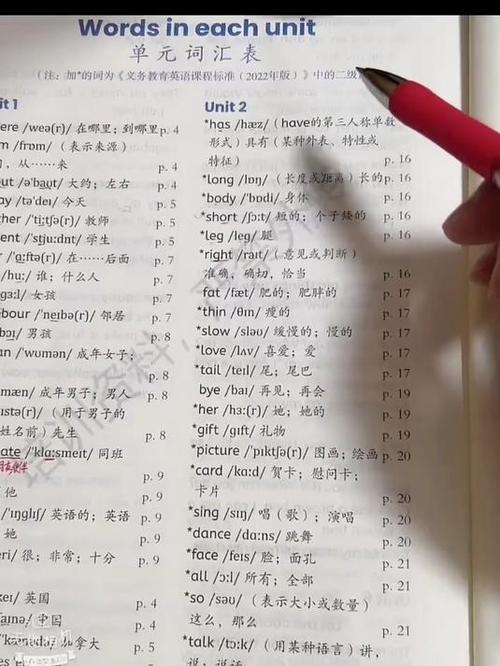 Words in each unit
单元词汇表
(注：加*的词为《义务教育英语课程标准(2022年版)》中的二级
it 1
ere /weə(r)/ 在哪里；到哪里 p. 4
m /frɒm/ (表示来源)
，从……来 p. 4
out /ə'baʊt/ 大约；左右 p. 4
ay /tə'deɪ/ 今天 p. 5
ther /'tiːtʃə(r)/ 教师 p. 5
ent /'stjuːdnt/ 学生 p. 5
/'ɑːftə(r)/ 在……后面 p. 7
/huː/ 谁；什么人 p. 7
gɜːl/ 女孩 p. 7
bour /'neɪbə(r)/ 邻居 p. 7
bɔɪ/ 男孩 p. 8
an /'wʊmən/ 成年女子；
p. 8
mæn/ 成年男子；男人 p. 8
ɪstə(r)/ (用于男子的
姓名前) 先生 p. 8
ate /'klɑːsmeɪt/ 同班
p. 9
他 p. 9
/'ɪŋglɪʃ/ 英语的；英语 p. 9
她 p. 9
eri/ 很；非常；十分 p. 9
keɪ/ 英国 p. 4
中国 p. 4
/'kænədə/ 加拿大 p. 5
Unit 2
*has /hæz/ (have的第三人称单数
形式) 具有 (某种外表、特性或
特征) p. 16
*long /lɒŋ/ (长度或距离) 长的 p. 16
*body /'bɒdi/ 身体 p. 16
*short /ʃɔːt/ 短的；个子矮的 p. 16
*leg /leg/ 腿 p. 16
*right /raɪt/ (意见或判断)
准确，确切，恰当 p. 16
fat /fæt/ 肥的；肥胖的 p. 17
*thin /θɪn/ 瘦的 p. 17
*slow /sləʊ/ 缓慢的；慢的 p. 17
*love /lʌv/ 喜爱；爱 p. 17
*tail /teɪl/ 尾；尾巴 p. 17
bye /baɪ/ 再见；再会 p. 17
*her /hɜː(r)/ 她；她的 p. 17
*gift /gɪft/ 礼物 p. 17
*picture /'pɪktʃə(r)/ 图画；绘画 p. 20
*card /kɑːd/ 贺卡；慰问卡；
卡片 p. 20
*sing /sɪŋ/ 唱 (歌)；演唱 p. 20
*dance /dɑːns/ 跳舞 p. 20
*face /feɪs/ 脸；面孔 p. 21
*all /ɔːl/ 所有；全部 p. 21
*so /səʊ/ (表示大小或数量)
这么，那么 p. 21
*talk /tɔːk/ (用某种语言) 讲，
说；说话